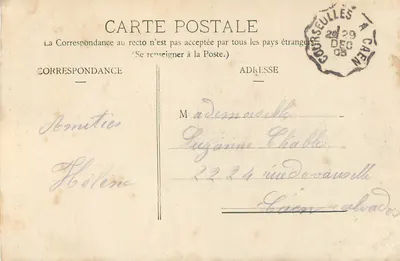 CARTE POSTALE
La Correspondance au recto n'est pas acceptée par tous les pays étrangers
(Se renseigner à la Poste.)
COURSEULLES A CAEN
29
DEC
CORRESPONDANCE
ADRESSE
Amitiés
Hélène
Mademoiselle
Suzanne
2224 rue de vaucelle
Caen calvados